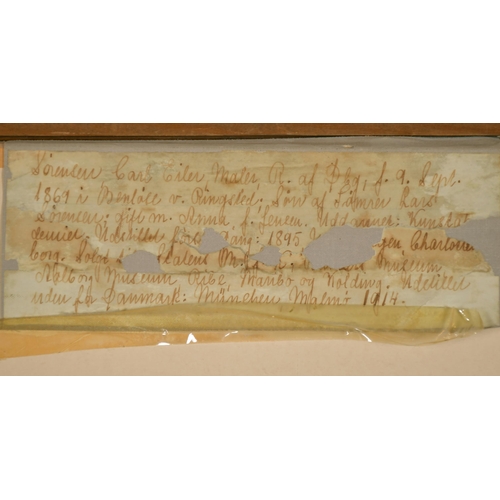 Sörensen Carl Eiler Maler R. af Dbg, f. 9. Sept.
1869 i Benlöse v. Ringsted. Sön af Tömrer Lars
Sörensen. gift m. Anna f. Jensen. Uddannet: Kunstaka
demiet, Udstillet første Gang: 1895 gen Charlotten
borg. Solgt til Statens Mus Museum
Aalborg Museum Ribe, Maribo og Kolding. Udstillet
uden for Danmark: München Malmö 1914.